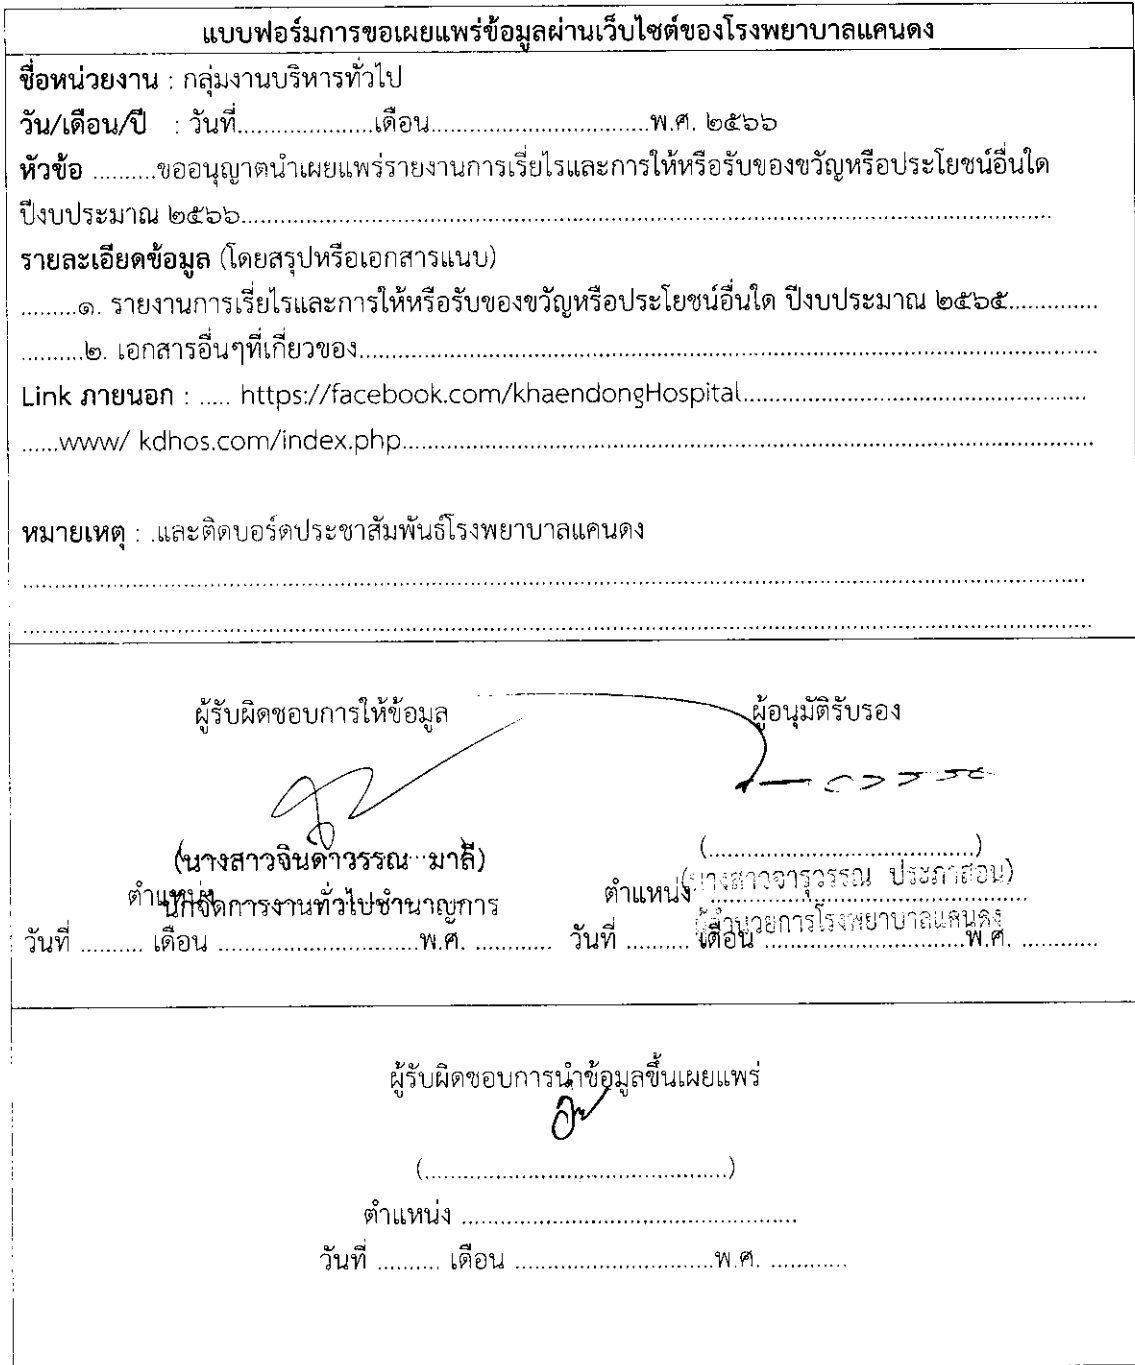 แบบฟอร์มการขอเผยแพร่ข้อมูลผ่านเว็บไซต์ของโรงพยาบาลแคนดง
ชื่อหน่วยงาน : กลุ่มงานบริหารทั่วไป
วัน/เดือน/ปี : วันที่.....................เดือน..................................พ.ศ. ๒๕๖๖
หัวข้อ ..........ขออนุญาตนำเผยแพร่รายงานการเรี่ยไรและการให้หรือรับของขวัญหรือประโยชน์อื่นใด
ปีงบประมาณ ๒๕๖๖..........................................................................
รายละเอียดข้อมูล (โดยสรุปหรือเอกสารแนบ)
.........๑. รายงานการเรี่ยไรและการให้หรือรับของขวัญหรือประโยชน์อื่นใด ปีงบประมาณ ๒๕๖๕..............
..........๒. เอกสารอื่นๆที่เกี่ยวของ..........................................................................
Link ภายนอก : ..... https://facebook.com/khaendongHospital..................................................
......www/ kdhos.com/index.php..........................................................................
หมายเหตุ : .และติดบอร์ดประชาสัมพันธ์โรงพยาบาลแคนดง
ผู้รับผิดชอบการให้ข้อมูล ผู้อนุมัติรับรอง
(นางสาวจินดาวรรณ มาลี) (......................................)
ตำแหน่ง นักจัดการงานทั่วไปชำนาญการ ตำแหน่ง (นางสาวจารุวรรณ ประภาสอน)
ผู้อำนวยการโรงพยาบาลแคนดง
วันที่ .......... เดือน ................................พ.ศ. ............ วันที่ .......... เดือน ................................พ.ศ. ............
ผู้รับผิดชอบการนำข้อมูลขึ้นเผยแพร่
(................................................)
ตำแหน่ง .....................................................
วันที่ .......... เดือน ................................พ.ศ. ............